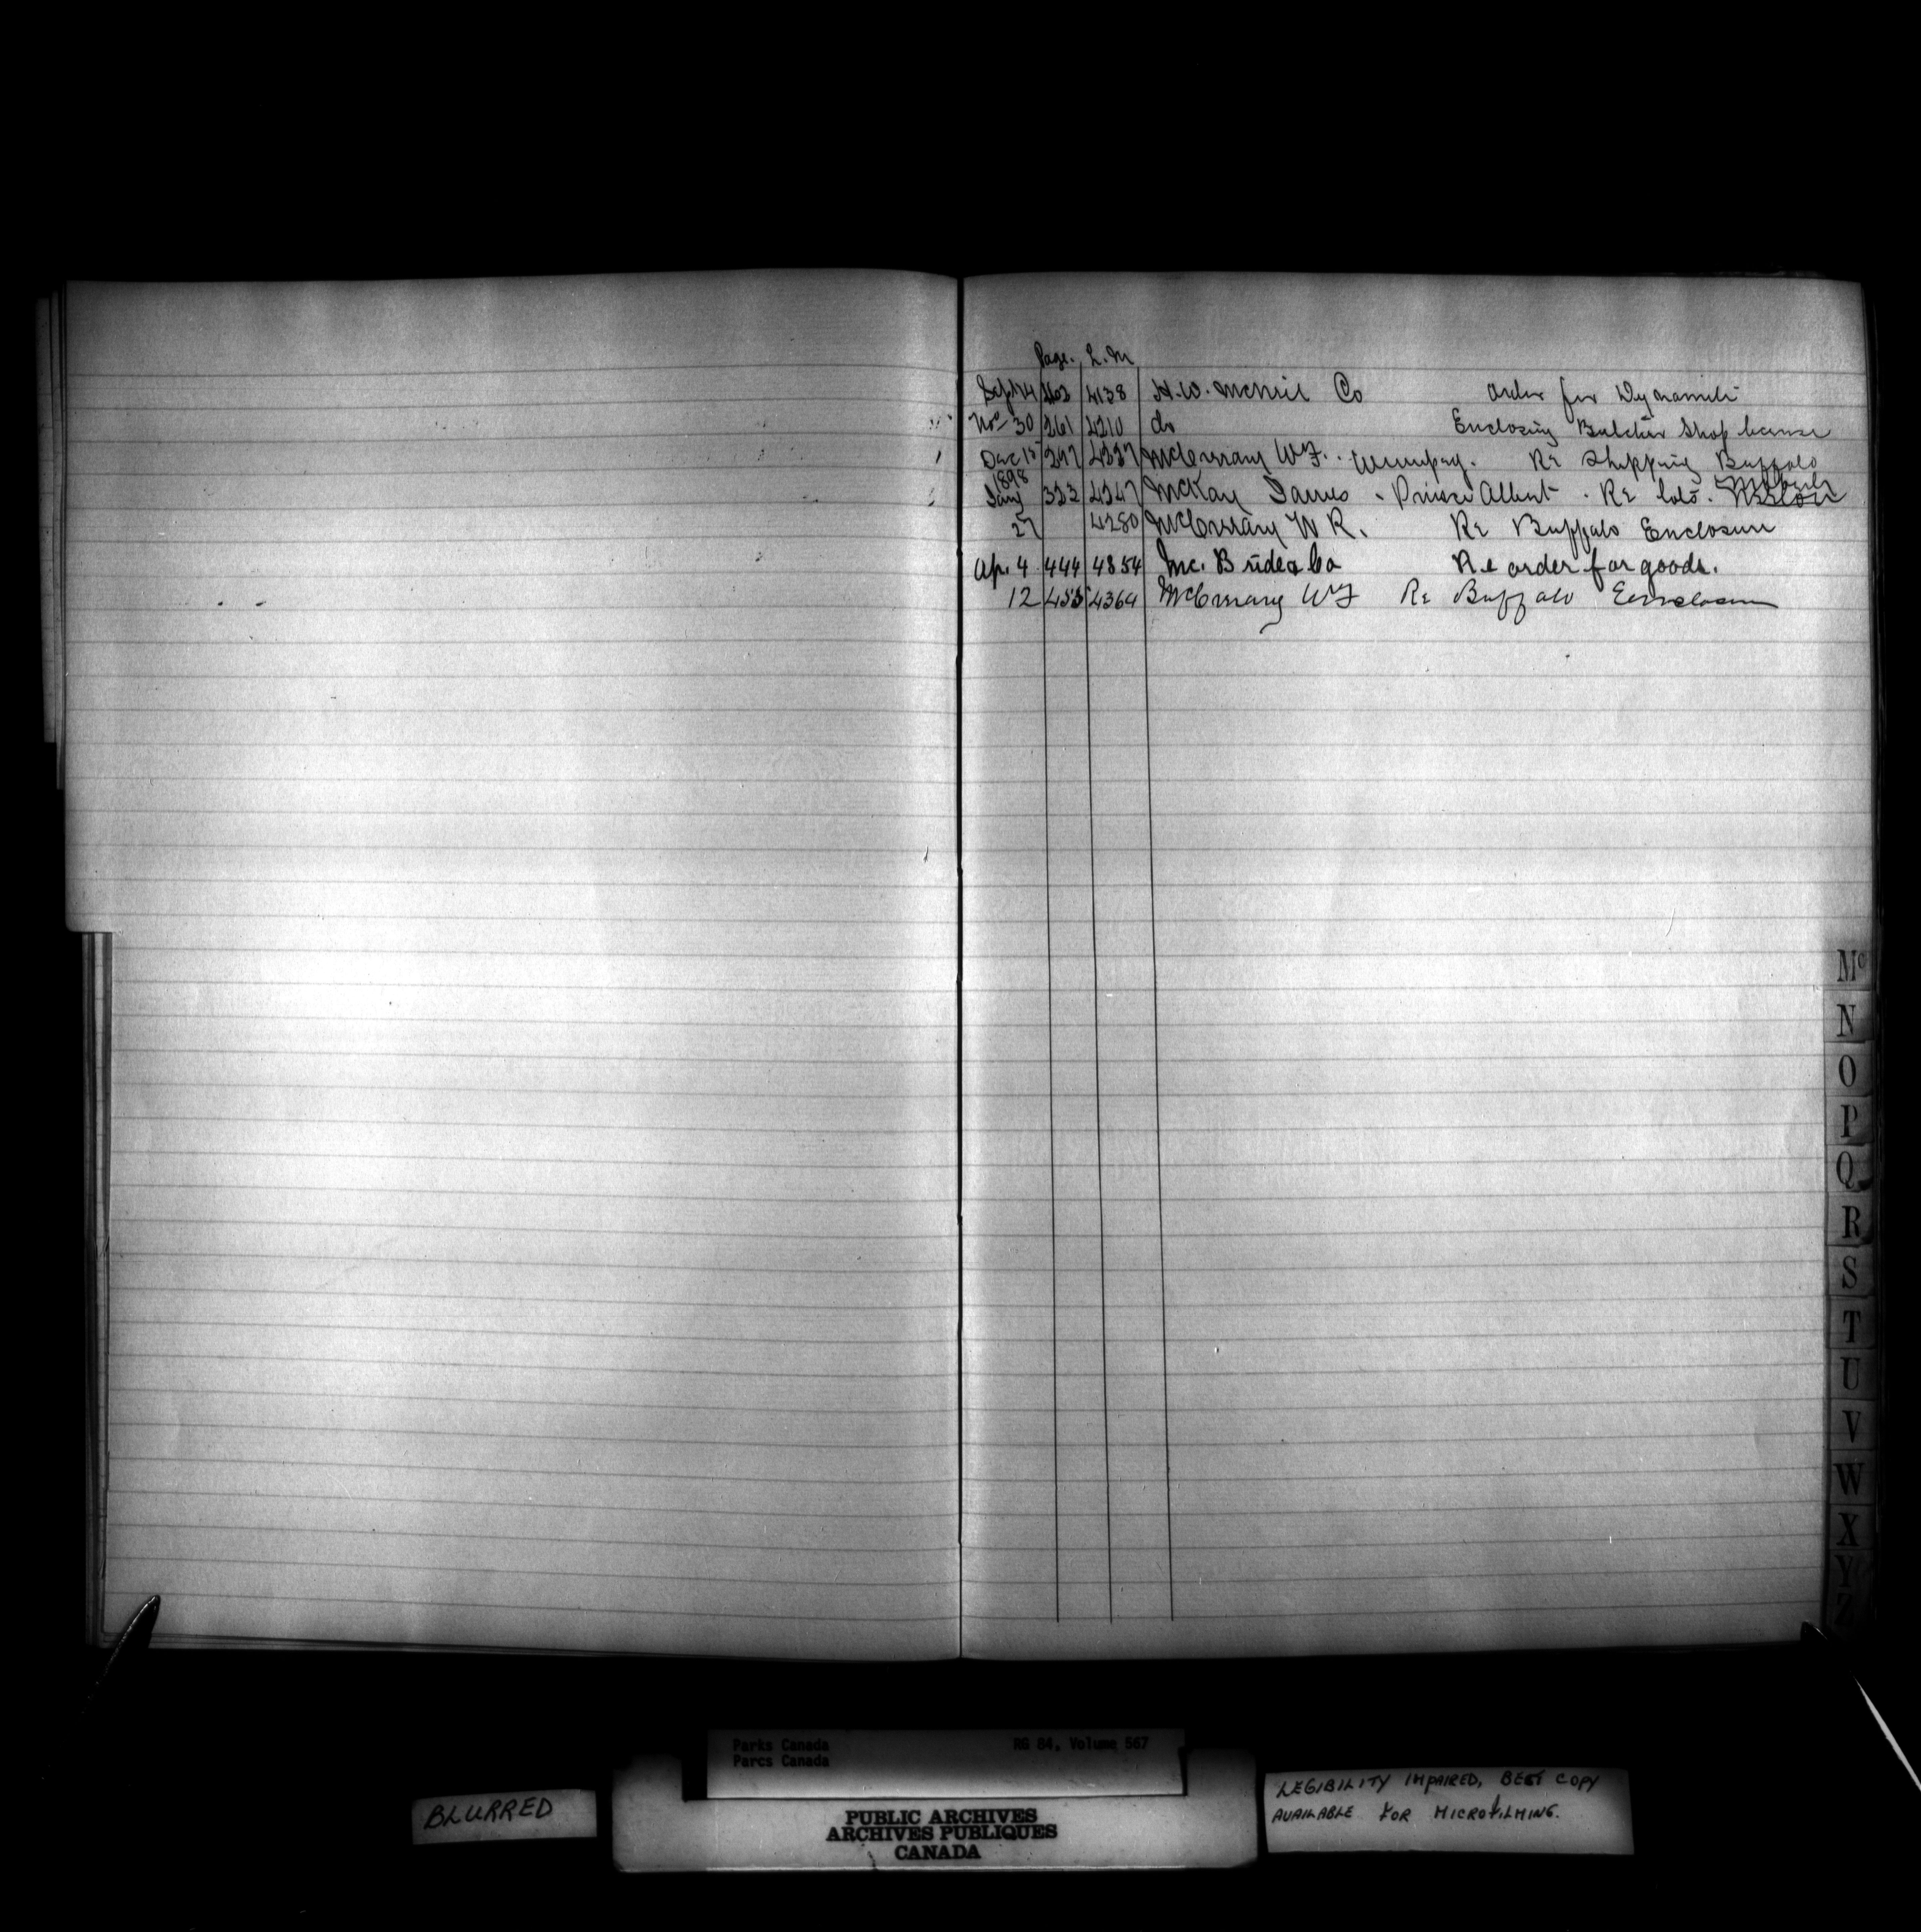 Page. L.M
Sept 14 4138 H.W. McNeil Co order for Dynamite
Nov 30 261 4210 do Enclosing Butcher Shop license
Dec 15 297 4237 McCreary W.F. Winnipeg. Re Shipping Buffalo
1898
Jany 323 4247 McKay James - Prince Albert. Re lots.
27 4280 McCreary W R. Re Buffalo Enclosure
Ap. 4 444 4354 Mc. Bride & Co Re order for goods.
12 455 4364 McCreary WF Re Buffalo Enclosure
Mc
N
O
P
Q
R
S
T
U
V
W
X
Y
Z
Parks Canada RG 84, Volume 567
Parcs Canada
BLURRED
PUBLIC ARCHIVES
ARCHIVES PUBLIQUES
CANADA
LEGIBILITY IMPAIRED, BEST COPY
AVAILABLE FOR MICROFILMING.